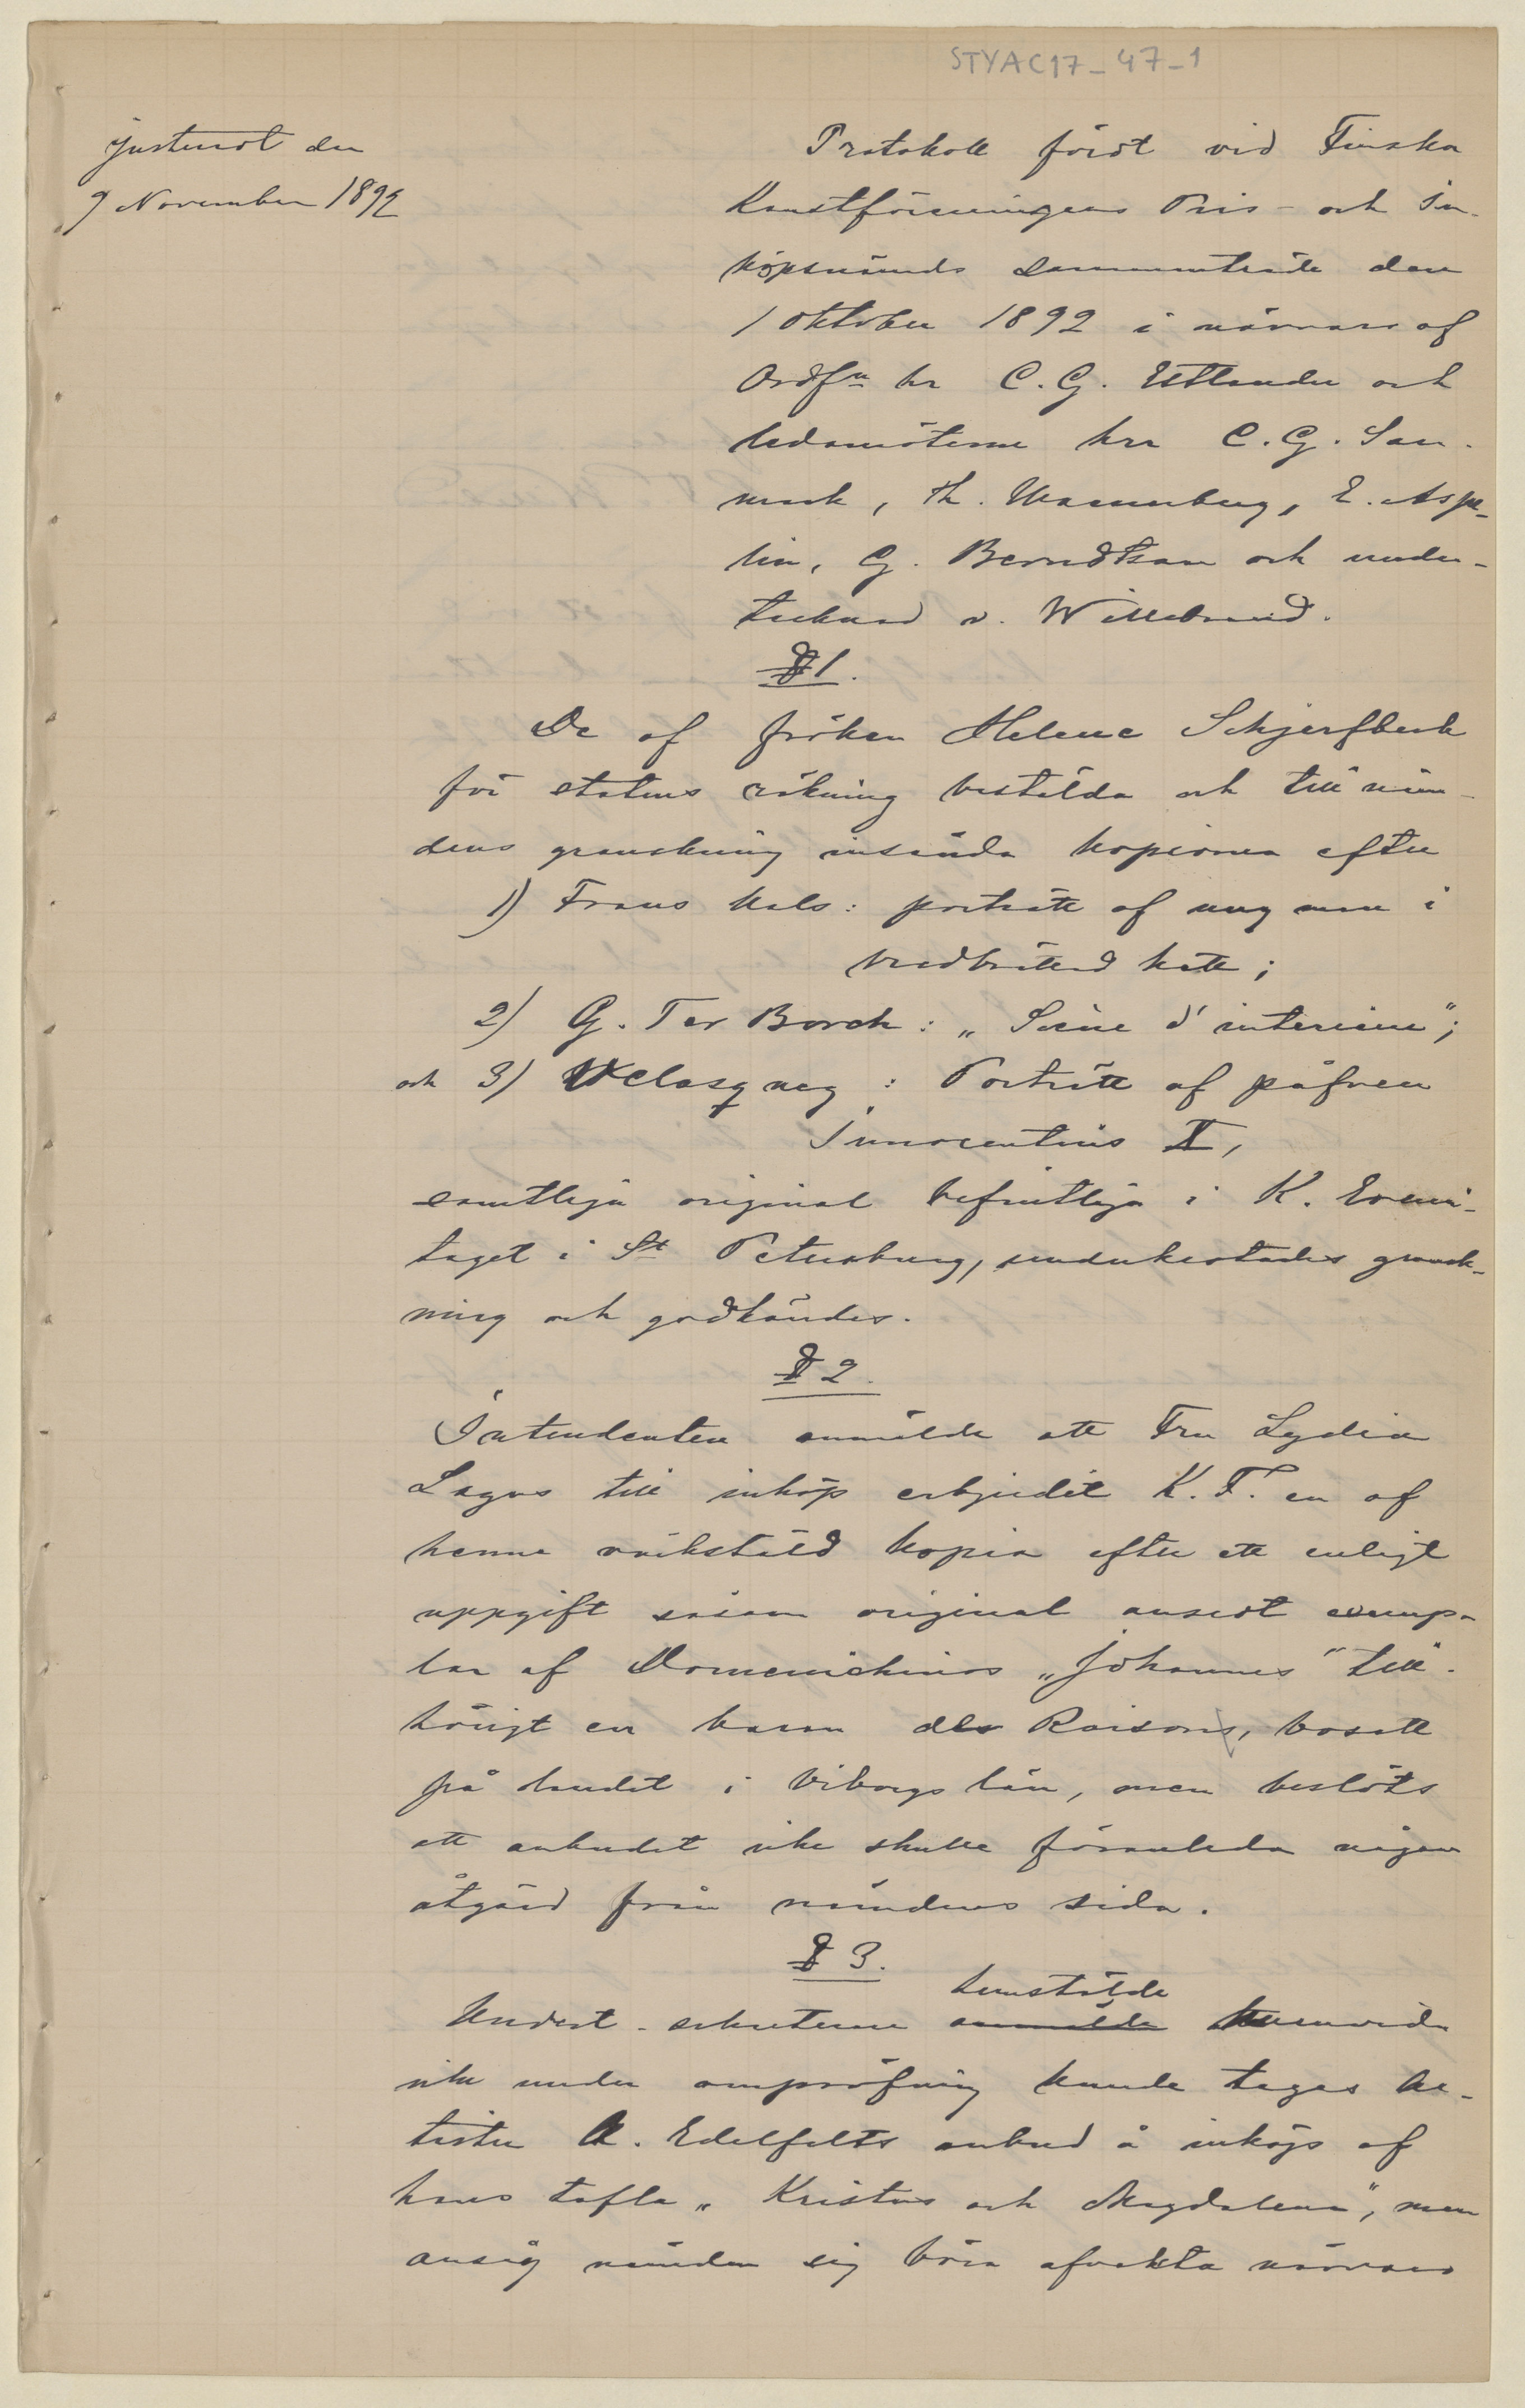 STYAC17_47_1
Justerat den
9 November 1892
Protokoll fördt vid Finska
Konstföreningens Pris- och in-
köpsnämds sammanträde den
1 oktober 1892 i närvaro af
Ordf:n hr C. G. Estlander och
ledamöterne hrr C. G. San-
mark, Th. Waenerberg, E. Aspe-
lin, G. Berndtson och under-
tecknad v. Willebrand.
§ 1.
De af fröken Helene Schjerfbeck
för statens räkning bestälda och till näm-
dens granskning insända kopiorna efter
1) Frans Hals: porträtt af ung man i
bredbrättad hatt;
2) G. Ter Borch: „Scène d'interieur";
och 3) Velasquez: Porträtt af påfven
Innocentius X,
samtliga original befintliga i K. Eremi-
taget i St Petersburg, underkastades gransk-
ning och godkändes.
§ 2.
Intendenten anmälde att Fru Lydia
Lagus till inköp erbjudit K. F. en af
henne värkstäld kopia efter ett enligt
uppgift såsom original ansedt exemp-
lar af Domenichinos „Johannes" till-
hörigt en baron des Raisons, bosatt
på landet i Viborgs län, men beslöts
att anbudet icke skulle föranleda någon
åtgärd från nämdens sida.
§ 3.
hemstälde
Undert. sekreterare anmälde huruvida
icke under ompröfning kunde tagas ar-
tisten A. Edelfelts anbud å inköp af
hans tafla „Kristus och Magdalena", men
ansåg nämden sig böra afvakta närvaro